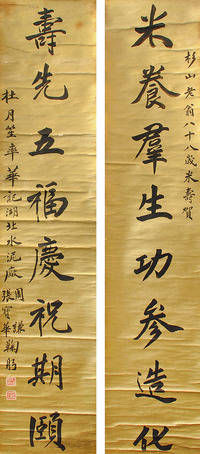 杉山老翁八十八歲米壽賀
米養羣生功參造化
壽先五福慶祝期頤
杜月笙率華記湖北水泥廠
周謙
張寶華鞠躬